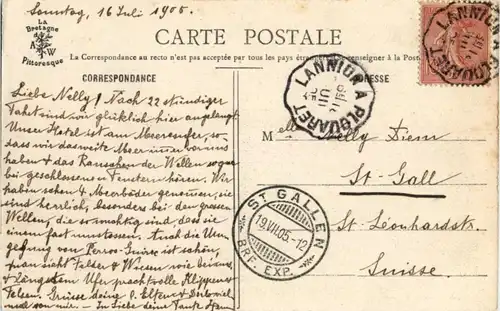 Sonntag, 16 Juli 1905.
La
Bretagne
A W
Pittoresque
CARTE POSTALE
La Correspondance au recto n'est pas acceptée par tous les pays étrangers. Se renseigner à la Poste
CORRESPONDANCE
ADRESSE
LANNION A PLOUARET
LANNION
PLOUARET
Liebe Nelly! Nach 22 stündiger
Fahrt sind wir glücklich hier angelangt
Unser Hotel ist am Meeresufer, so-
dass wir das weite Meer immer vor uns
haben & das Rauschen der Wellen sogar
bei geschlossenen Fenstern hören. Wir
haben schon 4 Meerbäder genommen, sie
sind herrlich, besonders bei den grossen
Wellen, die so mächtig sind dass sie
einem fast umstossen. Auch die Um
gegung von Perros-Guirec ist schön,
man sieht Felder & Wiesen wie bei uns,
& längs dem Ufer prachtvolle Klippen &
Felsen. Grüsse deine l. Eltern &
und von mir. - In Liebe deine Tante
Melle Nelly Diem
St-Gall
St. Léonhardstr.
Suisse
ST GALLEN
19.VII.05.-12
BRF. EXP.